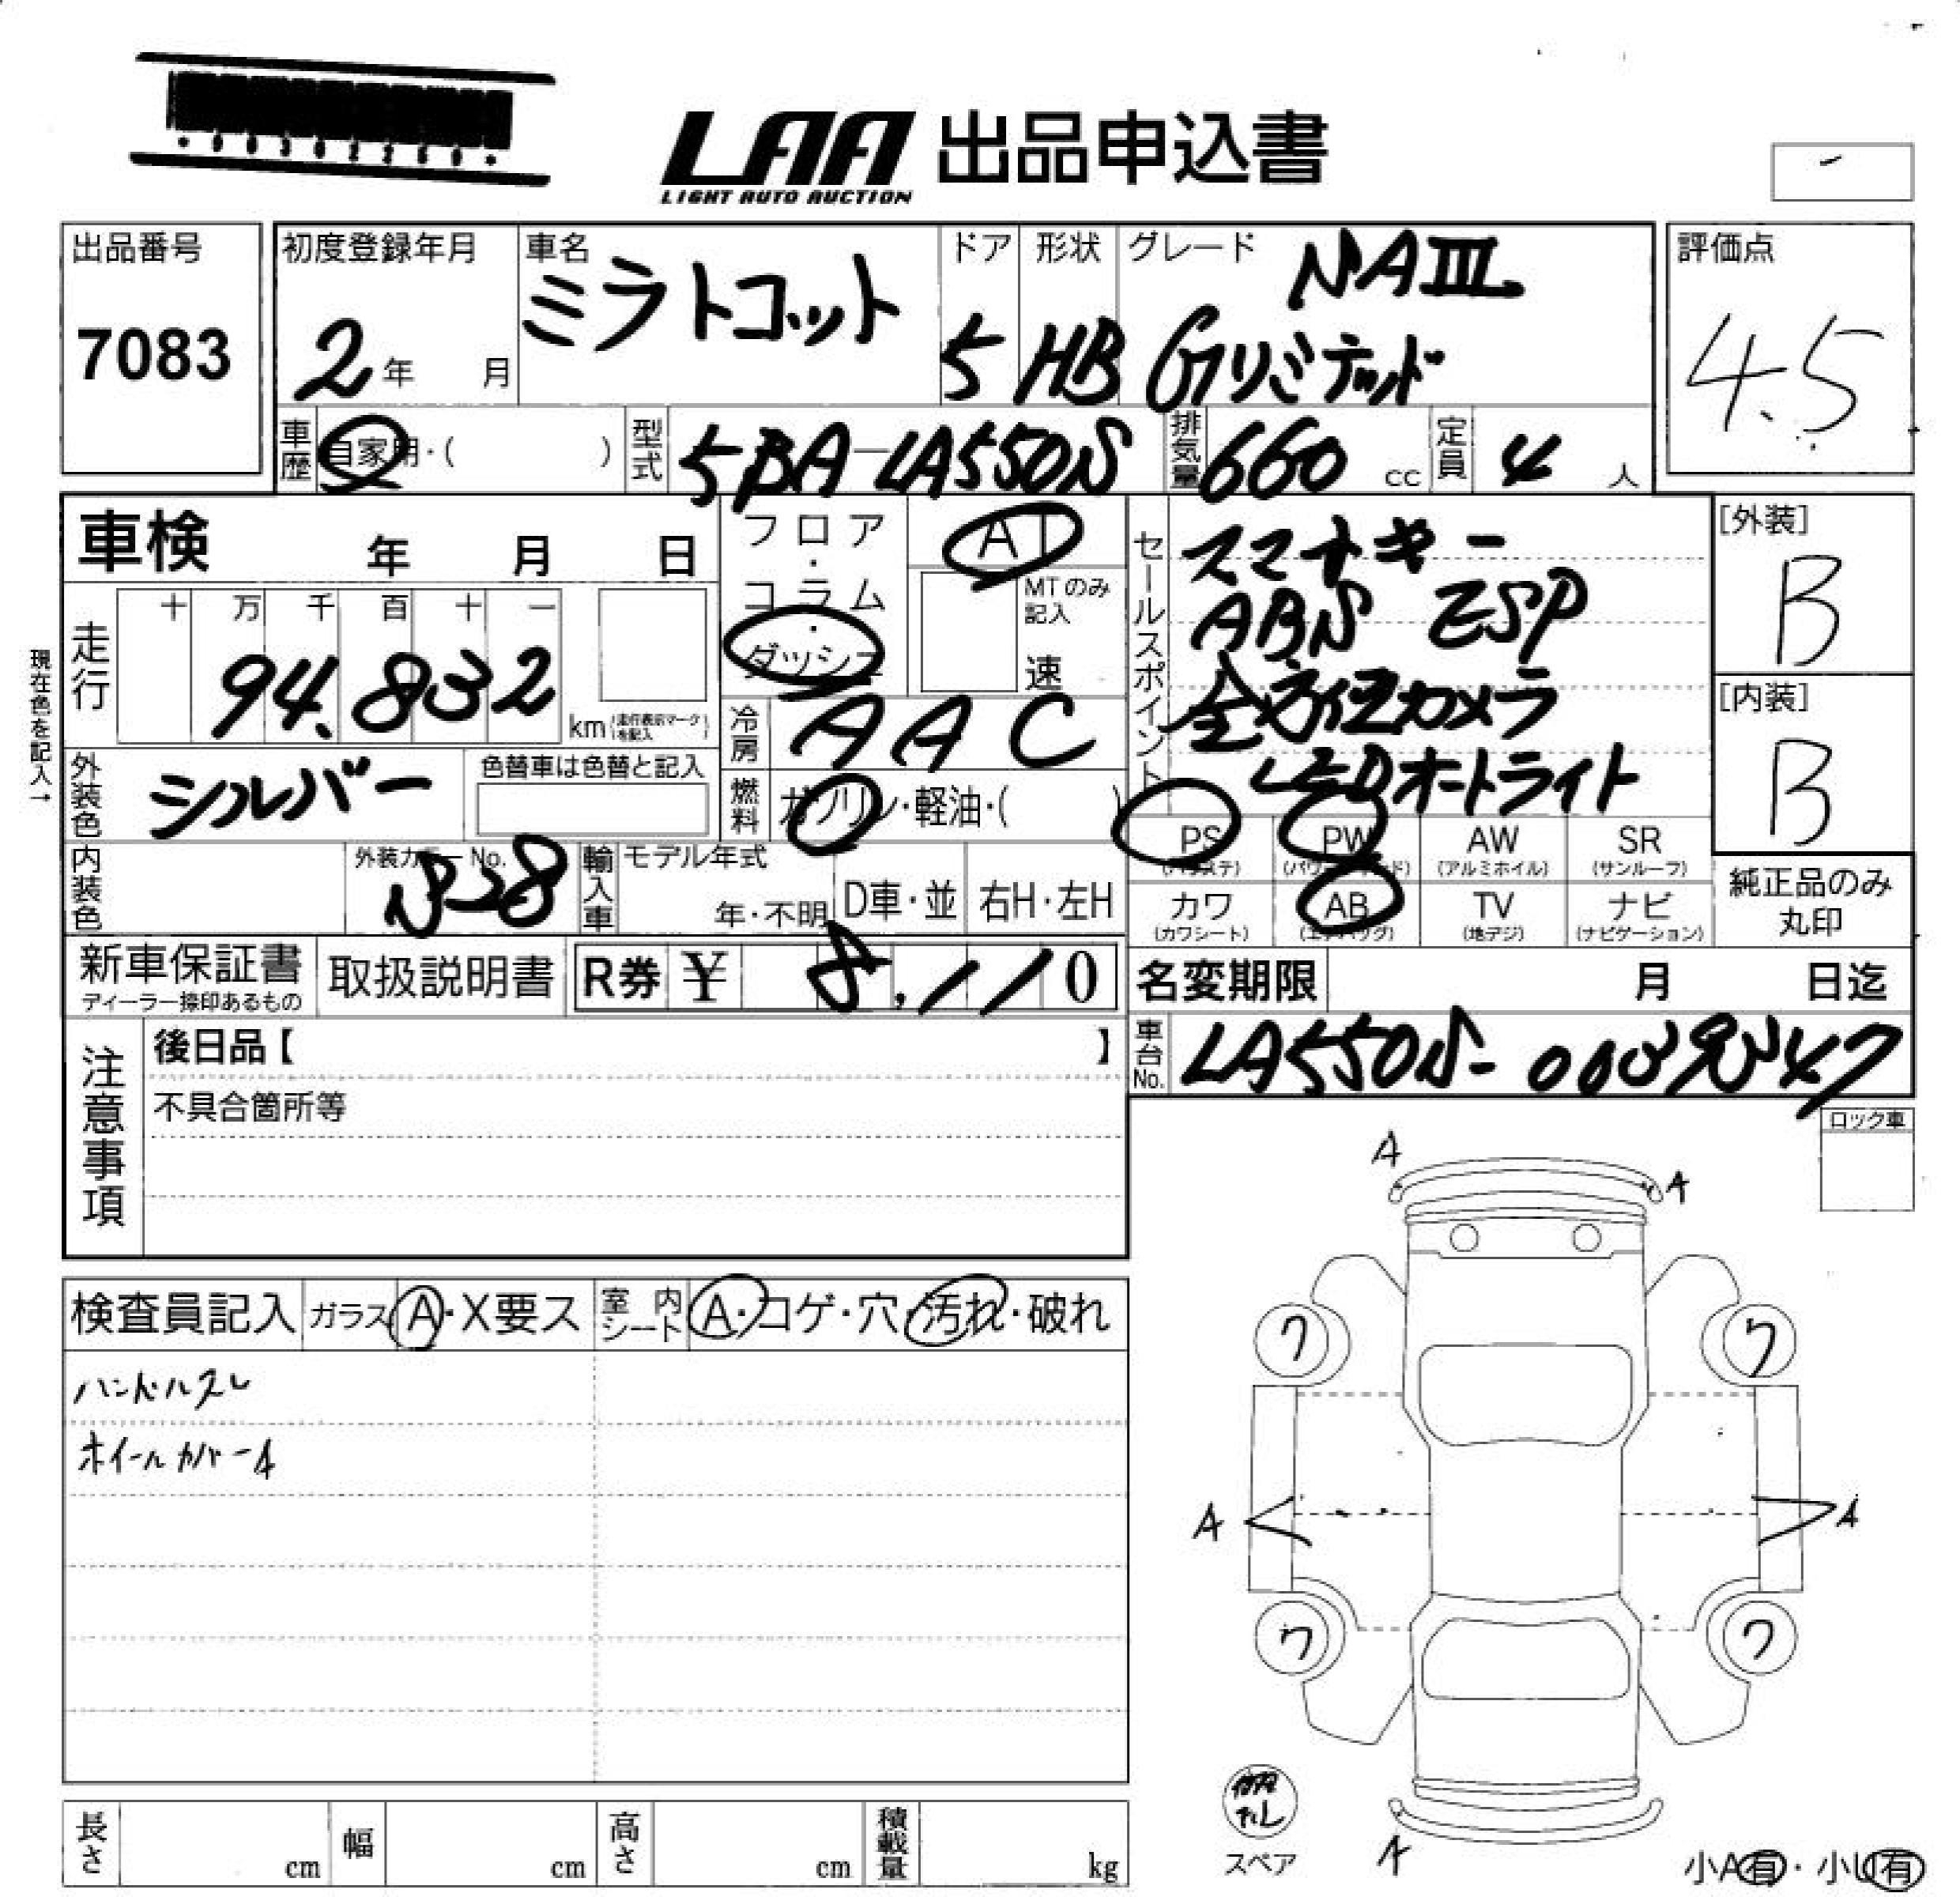 LAA 出品申込書
LIGHT AUTO AUCTION
出品番号
7083
初度登録年月
2年 月
車名
ミラトコット
ドア
5
形状
HB
グレード
NAⅢ
Gリミテッド
評価点
4.5
車歴 自家用・( )
型式 5BA-LA550S
排気量 660 cc
定員 4 人
車検 年 月 日
フロア・コラム・ダッシュ
AT
MTのみ記入
速
セールスポイント
スマートキー
ABS ESP
全方位カメラ
LEDオートライト
[外装]
B
[内装]
B
現在色を記入→
走行 十万千百十一
94,832
km (走行表示マークを記入)
冷房 AAC
外装色 シルバー
色替車は色替と記入
燃料 ガソリン・軽油・( )
PS (パワステ)
PW
AW (アルミホイル)
SR (サンルーフ)
カワ (カワシート)
AB (エアバッグ)
TV (地デジ)
ナビ (ナビゲーション)
純正品のみ
丸印
内装色
外装カラーNo.
S28
輸入車
モデル年式
年・不明
D車・並
右H・左H
新車保証書
ディーラー捺印あるもの
取扱説明書
R券 ¥ 8,110
名変期限 月 日迄
車台No. LA550S-
ロック車
注意事項
後日品【 】
不具合箇所等
検査員記入
ガラス A・X要ス
室内シート A・コゲ・穴・汚れ・破れ
ハンドルスレ
ホイールカバーA
A
A
ワ
ワ
A
A
ワ
ワ
A
スペア
小A有・小U有
長さ cm
幅 cm
高さ cm
積載量 kg